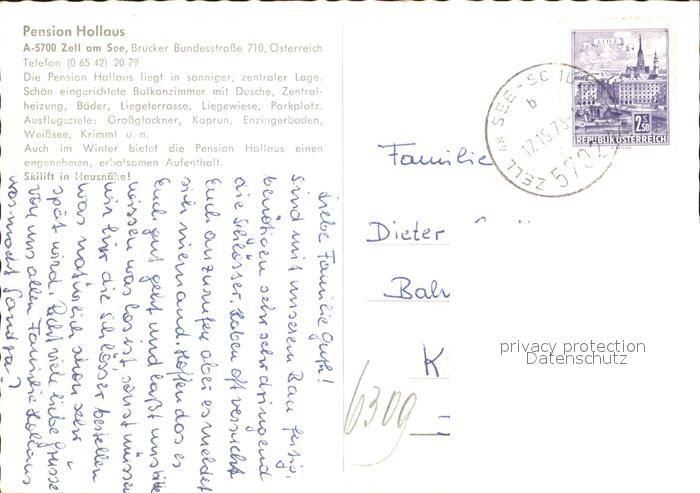 Pension Hollaus
A-5700 Zell am See, Brucker Bundesstraße 710, Österreich
Telefon (0 65 42) 20 79
Die Pension Hollaus liegt in sonniger, zentraler Lage.
Schön eingerichtete Balkonzimmer mit Dusche, Zentral-
heizung, Bäder, Liegeterrasse, Liegewiese, Parkplatz.
Ausflugsziele: Großglockner, Kaprun, Enzingerboden,
Weißsee, Krimml u. a.
Auch im Winter bietet die Pension Hollaus einen
angenehmen, erholsamen Aufenthalt.
Skilift in Hausnähe!
Liebe Familie
sind mit unseren Bau fertig,
benötigen sehr sehr dringend
die Schlösser. Haben oft versucht
Euch anzurufen aber es meldet
sich niemand. Hoffen das es
Euch gut geht und laßt uns bitte
wissen was los ist sonst müssen
wir hier die Schlösser bestellen
was natürlich schon sehr
spät wird. Recht viele liebe Grüsse
von uns allen Familie Hollaus
was macht
Familie
Dieter
K
6309
LINZ
2.50
REPUBLIK ÖSTERREICH
ZELL AM SEE
b
5702
privacy protection
Datenschutz